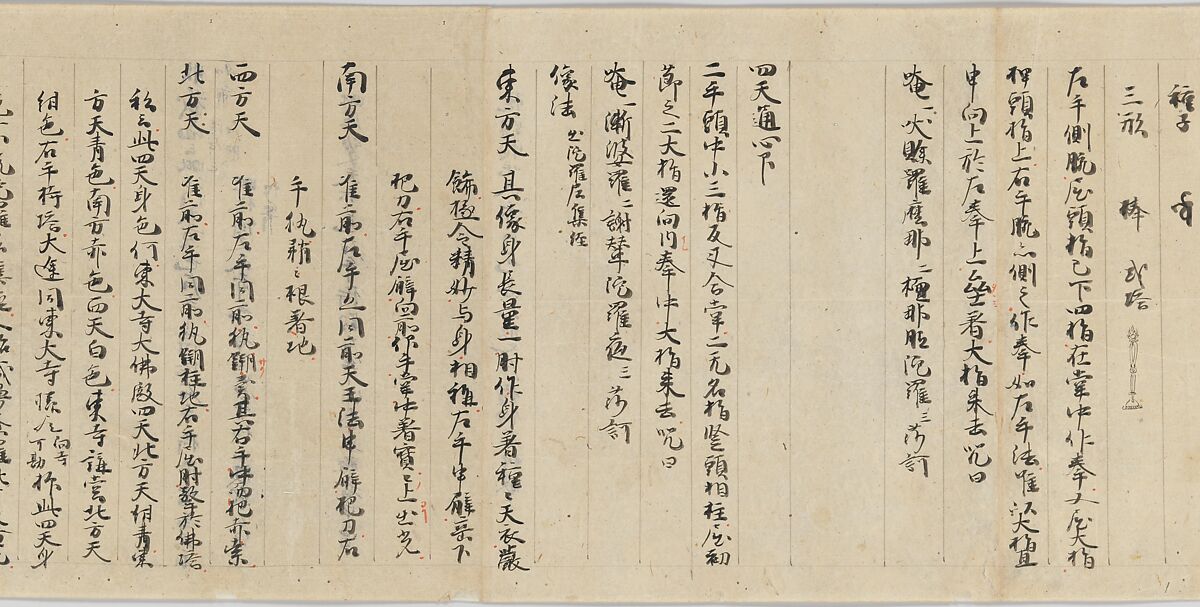 種子
三形 棒 或塔
左手側腕屈頭指已下四指在掌中作拳又屈大指
押頭指上右手腕亦側之作拳如左手法唯以大指直
申向上於左拳上壘著大指来去呪曰
唵一吠賒羅麽那二檀那陀羅三莎訶
四天通心印
二手頭中小三指反叉合掌二无名指竪頭相柱屈初
節之二大指還向内拳中大指来去呪曰
唵一漸婆羅二謝輦陀羅夜三莎訶
像法 出陀羅尼集経
東方天 其像身長量一肘作身著種々天衣嚴
飾極令精妙与身相稱左手申臂垂下
把刀右手屈臂向前仰手掌中著寶々上出光
南方天 准前左手亦同前天王法申臂把刀右
手執矟々根著地
西方天 准前左手同前執矟其右手把赤索
北方天 准前左手同前執矟柱地右手屈肘擎於佛塔
私云此四天身色何東大寺大佛殿四天北方天紺青東
方天青色南方赤色西天白色東寺講堂北方天
紺色右手持塔大途同東大寺 可勘 此四天身